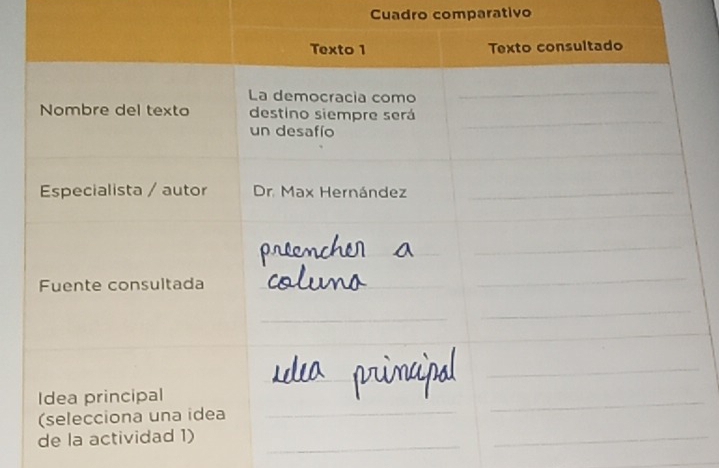 Cuadro comparativo
Texto 1
Texto consultado
Nombre del texto
La democracia como
destino siempre será
un desafío
Especialista / autor
Dr. Max Hernández
Fuente consultada
preencher a
coluna
Idea principal
(selecciona una idea
de la actividad 1)
idea principal